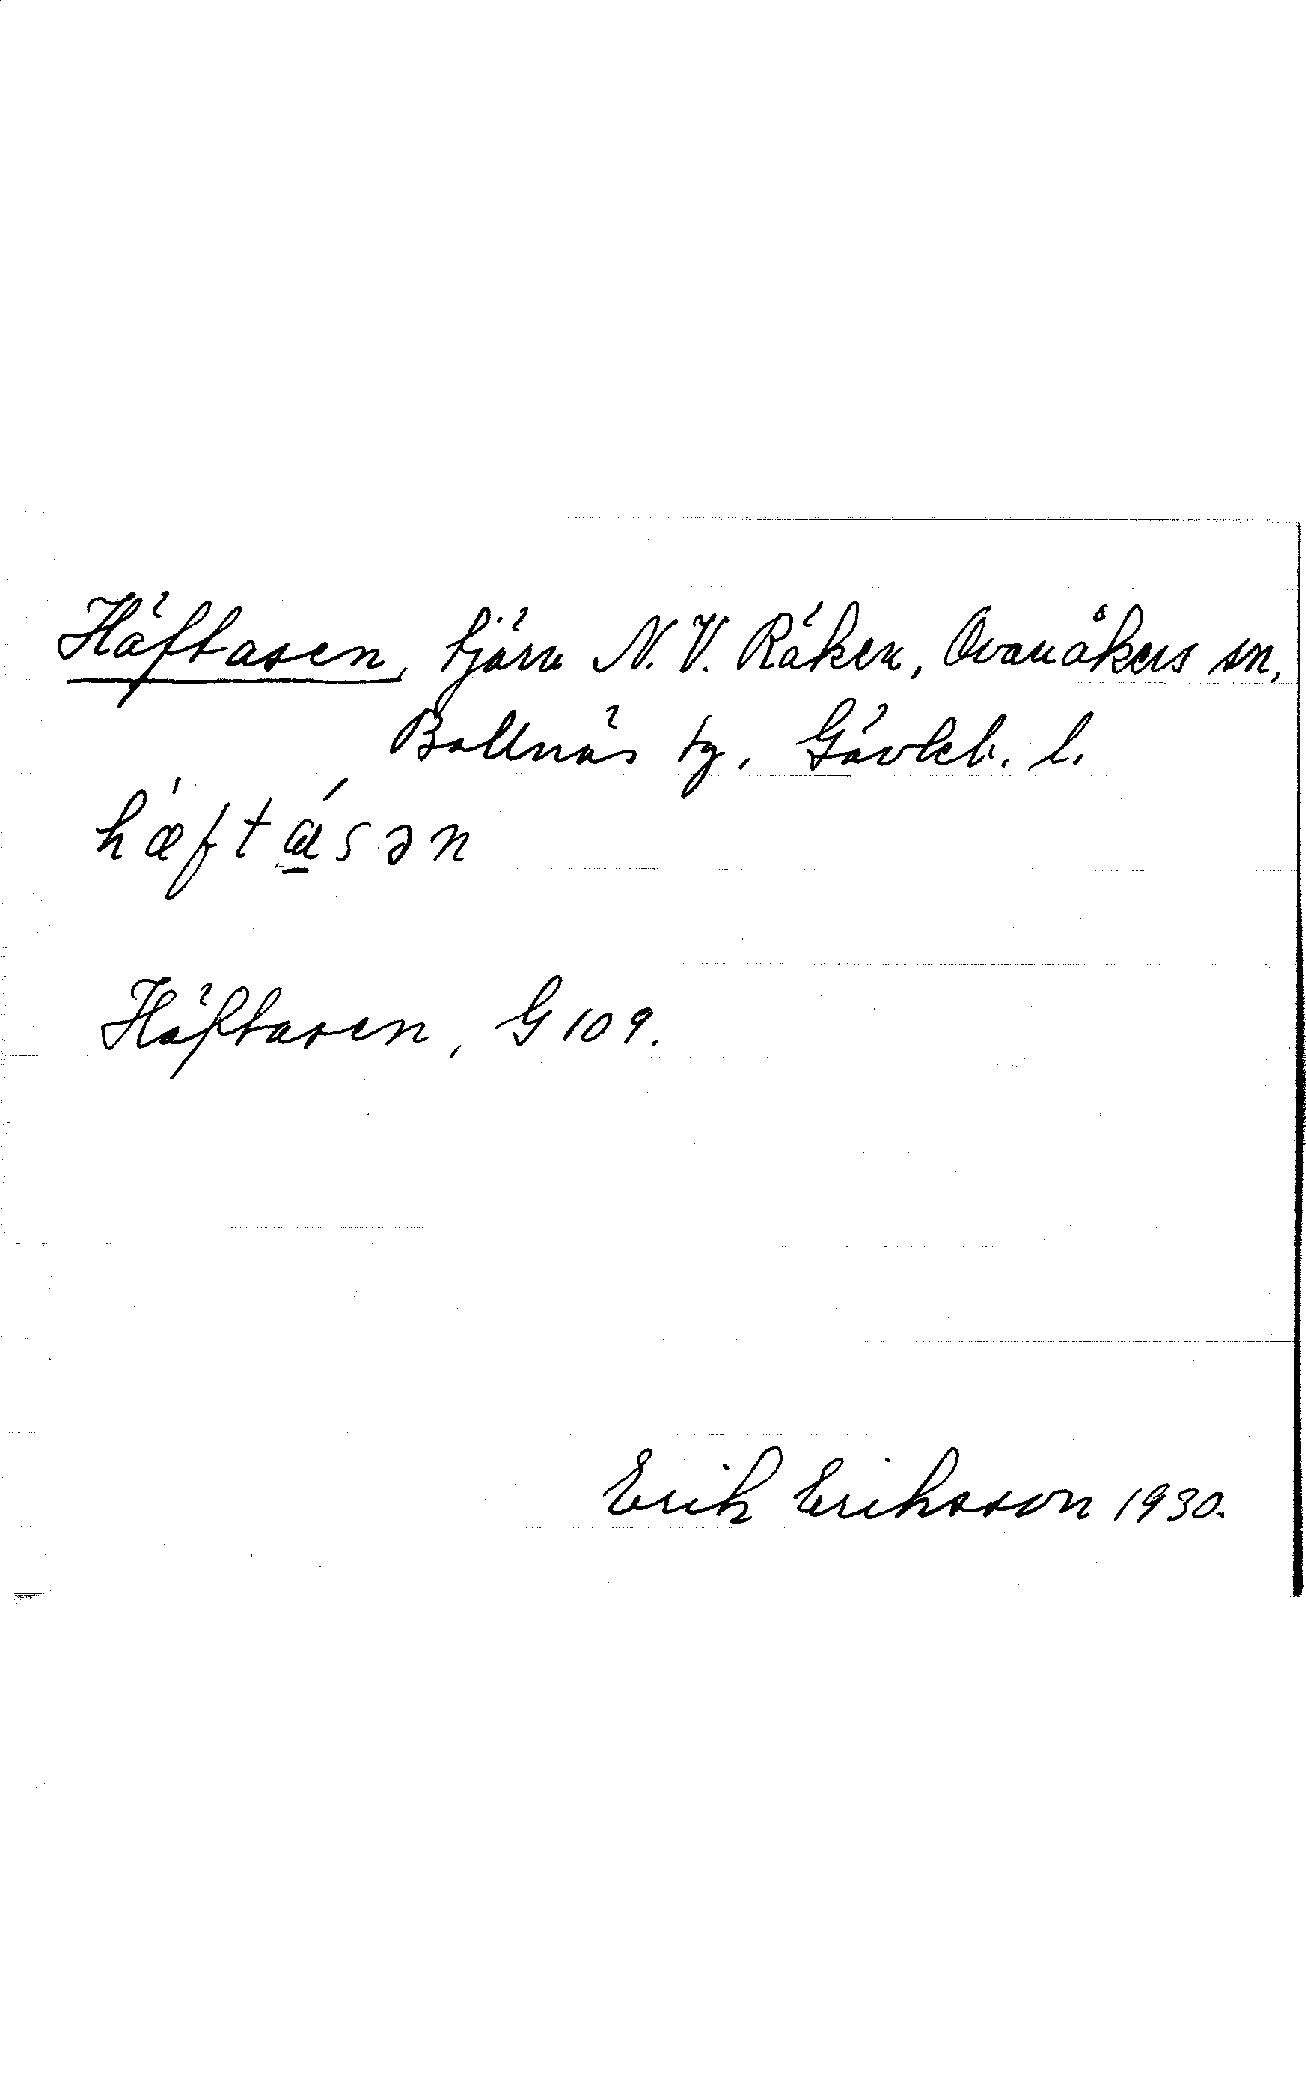 Häftasen, tjärn N. V. Räken, Ovanåkers sn,
Bollnäs tg, Gävleb. l.
hæftásən
Häftasen, G 109.
Erik Eriksson 1930.